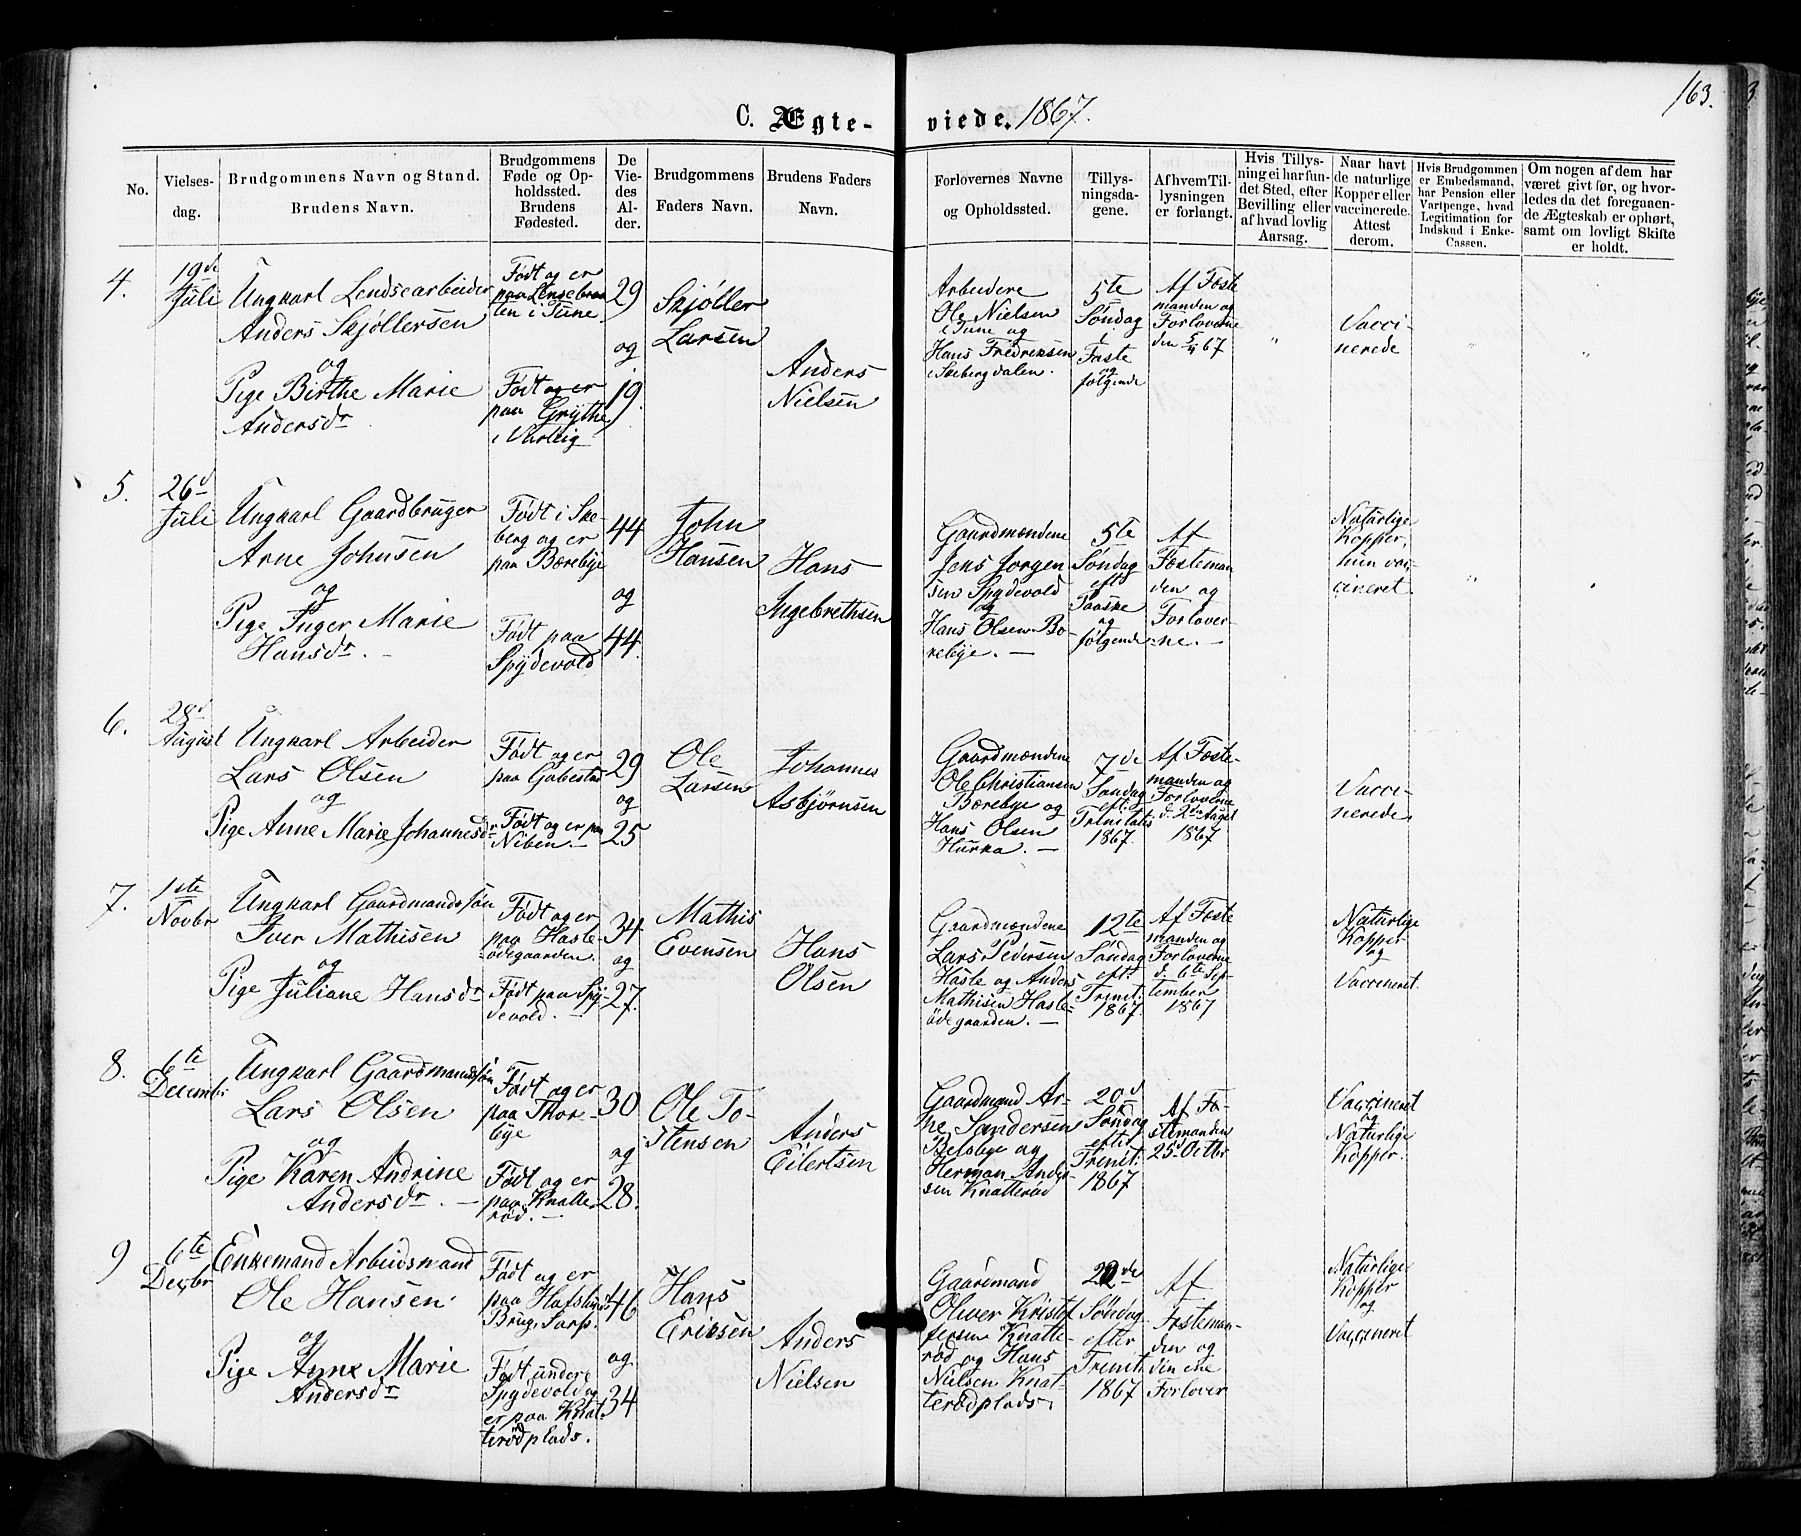 163.
C. Ægte-
viede. 1867.
No.
Vielses-
dag.
Brudgommens Navn og Stand.
Brudens Navn.
Brudgommens
Føde og Op-
holdssted.
Brudens
Fødested.
De
Vie-
des
Al-
der.
Brudgommens
Faders Navn.
Brudens Faders
Navn.
Forlovernes Navne
og Opholdssted.
Tillys-
ningsda-
gene.
Af hvem Til-
lysningen
er forlangt.
Hvis Tillys-
ning ei har fun-
det Sted, efter
Bevilling eller
af hvad lovlig
Aarsag.
Naar havt
de naturlige
Kopper eller
vaccinerede.
Attest
derom.
Hvis Brudgommen
er Embedsmand,
har Pension eller
Vartpenge, hvad
Legitimation for
Indskud i Enke-
Cassen.
Om nogen af dem har
været givt før, og hvor-
ledes da det foregaaen-
de Ægteskab er ophørt,
samt om lovligt Skifte
er holdt.
4.
19de
Juli
Ungkarl Lendsearbeider
Anders Skjøllersen
og
Pige Birthe Marie
Andersdr
Født og er
paa Lensebraa
ten i Tune.
Født og er
paa Grythe
i Varteig
29
og
19.
Skjøller
Larsen
Anders
Nielsen
Arbeidere
Ole Nielsen
i Tune og
Hans Fredriksen
i Skebergdalen.
5te
Søndag
i
Faste
og
følgende
Af Fæste
manden og
Forloverne
den 5/4 67
"
Vacci-
nerede
"
"
5.
26d
Juli
Ungkarl Gaardbruger
Arne Johnsen
og
Pige Inger Marie
Hansdr. -
Født i Ske-
berg og er
paa Bærebye
Født paa
Spydevold
44
og
44.
John
Hansen
Hans
Ingebrethsen
Gaardmændene
Jens Jørgen
sen Spydevold
og
Hans Olsen Bæ-
rebye. -
5te
Søndag
eft
Paaske
og
følgende
Af
Fæsteman
den og
Forlover-
ne. -
Naturlige
Kopper,
hun vac-
cineret
"
"
6.
28d
August
Ungkarl Arbeider
Lars Olsen
og
Pige Anne Marie Johannesdr
Født og er
paa Gabestad
Født og er paa
Niben. -
29
og
25
Ole
Larsen
Johannes
Asbjørnsen
Gaardmændene
Ole Christiansen
Bærebye og
Hans Olsen
Hurka. -
7de
Søndag
eft:
Trinitatis
1867.
Af Fæste-
manden og
Forloverne
d. 2den Augst
1867
Vacci-
nerede,
7.
1ste
Novbr
Ungkarl Gaardmandssøn
Iver Mathisen
og
Pige Juliane Hansdr
Født og er
paa Hasle-
ødegaarden.
Født paa Spy-
devold. -
34
og
27.
Mathis
Evensen
Hans
Olsen
Gaardmændene
Lars Pedersen
Hasle og Anders
Mathisen Hasle-
ødegaarden. -
12te
Søndag
eft:
Trenit:
1867.
Af Fæste
manden og
Forloverne
d. 6te Sep-
tember
1867
Naturlige
Kopper
og
Vaccineret.
8.
6te
Decembr
Ungkarl Gaardmandssøn
Lars Olsen
og
Pige Karen Andrine
Andersdr. -
Født og er
paa Thor-
bye
Født og er
paa Knatte
rød. -
30
og
28.
Ole To-
stensen
Anders
Eilertsen
Gaardmand Ar-
ne Sandersen
Belsbye og
Herman Ander
sen Knatterød
20d
Søndag
efter
Trenit:
1867
Af Fæ-
stemanden
25d Octbr
Vaccineret
og
Naturlige
Kopper.
9
6te
Decbr
Enkemand Arbeidsmand
Ole Hansen
og
Pige Anne Marie
Andersdr
Født og er
paa Hafslunds
Brug, Sarps.
Født under
Spydevold og
er paa Knat-
terødplads.
46
og
34
Hans
Eriksen
Anders
Nielsen
Gaardmand
Oliver Kristof
fersen Knatte-
rød og Hans
Nielsen Knat-
terødplads,
22de
Søndag
efter
Trenit:
1867
Af
Fæsteman-
den og
den ene
Forlover
Naturlige
Kopper
og
Vaccineret